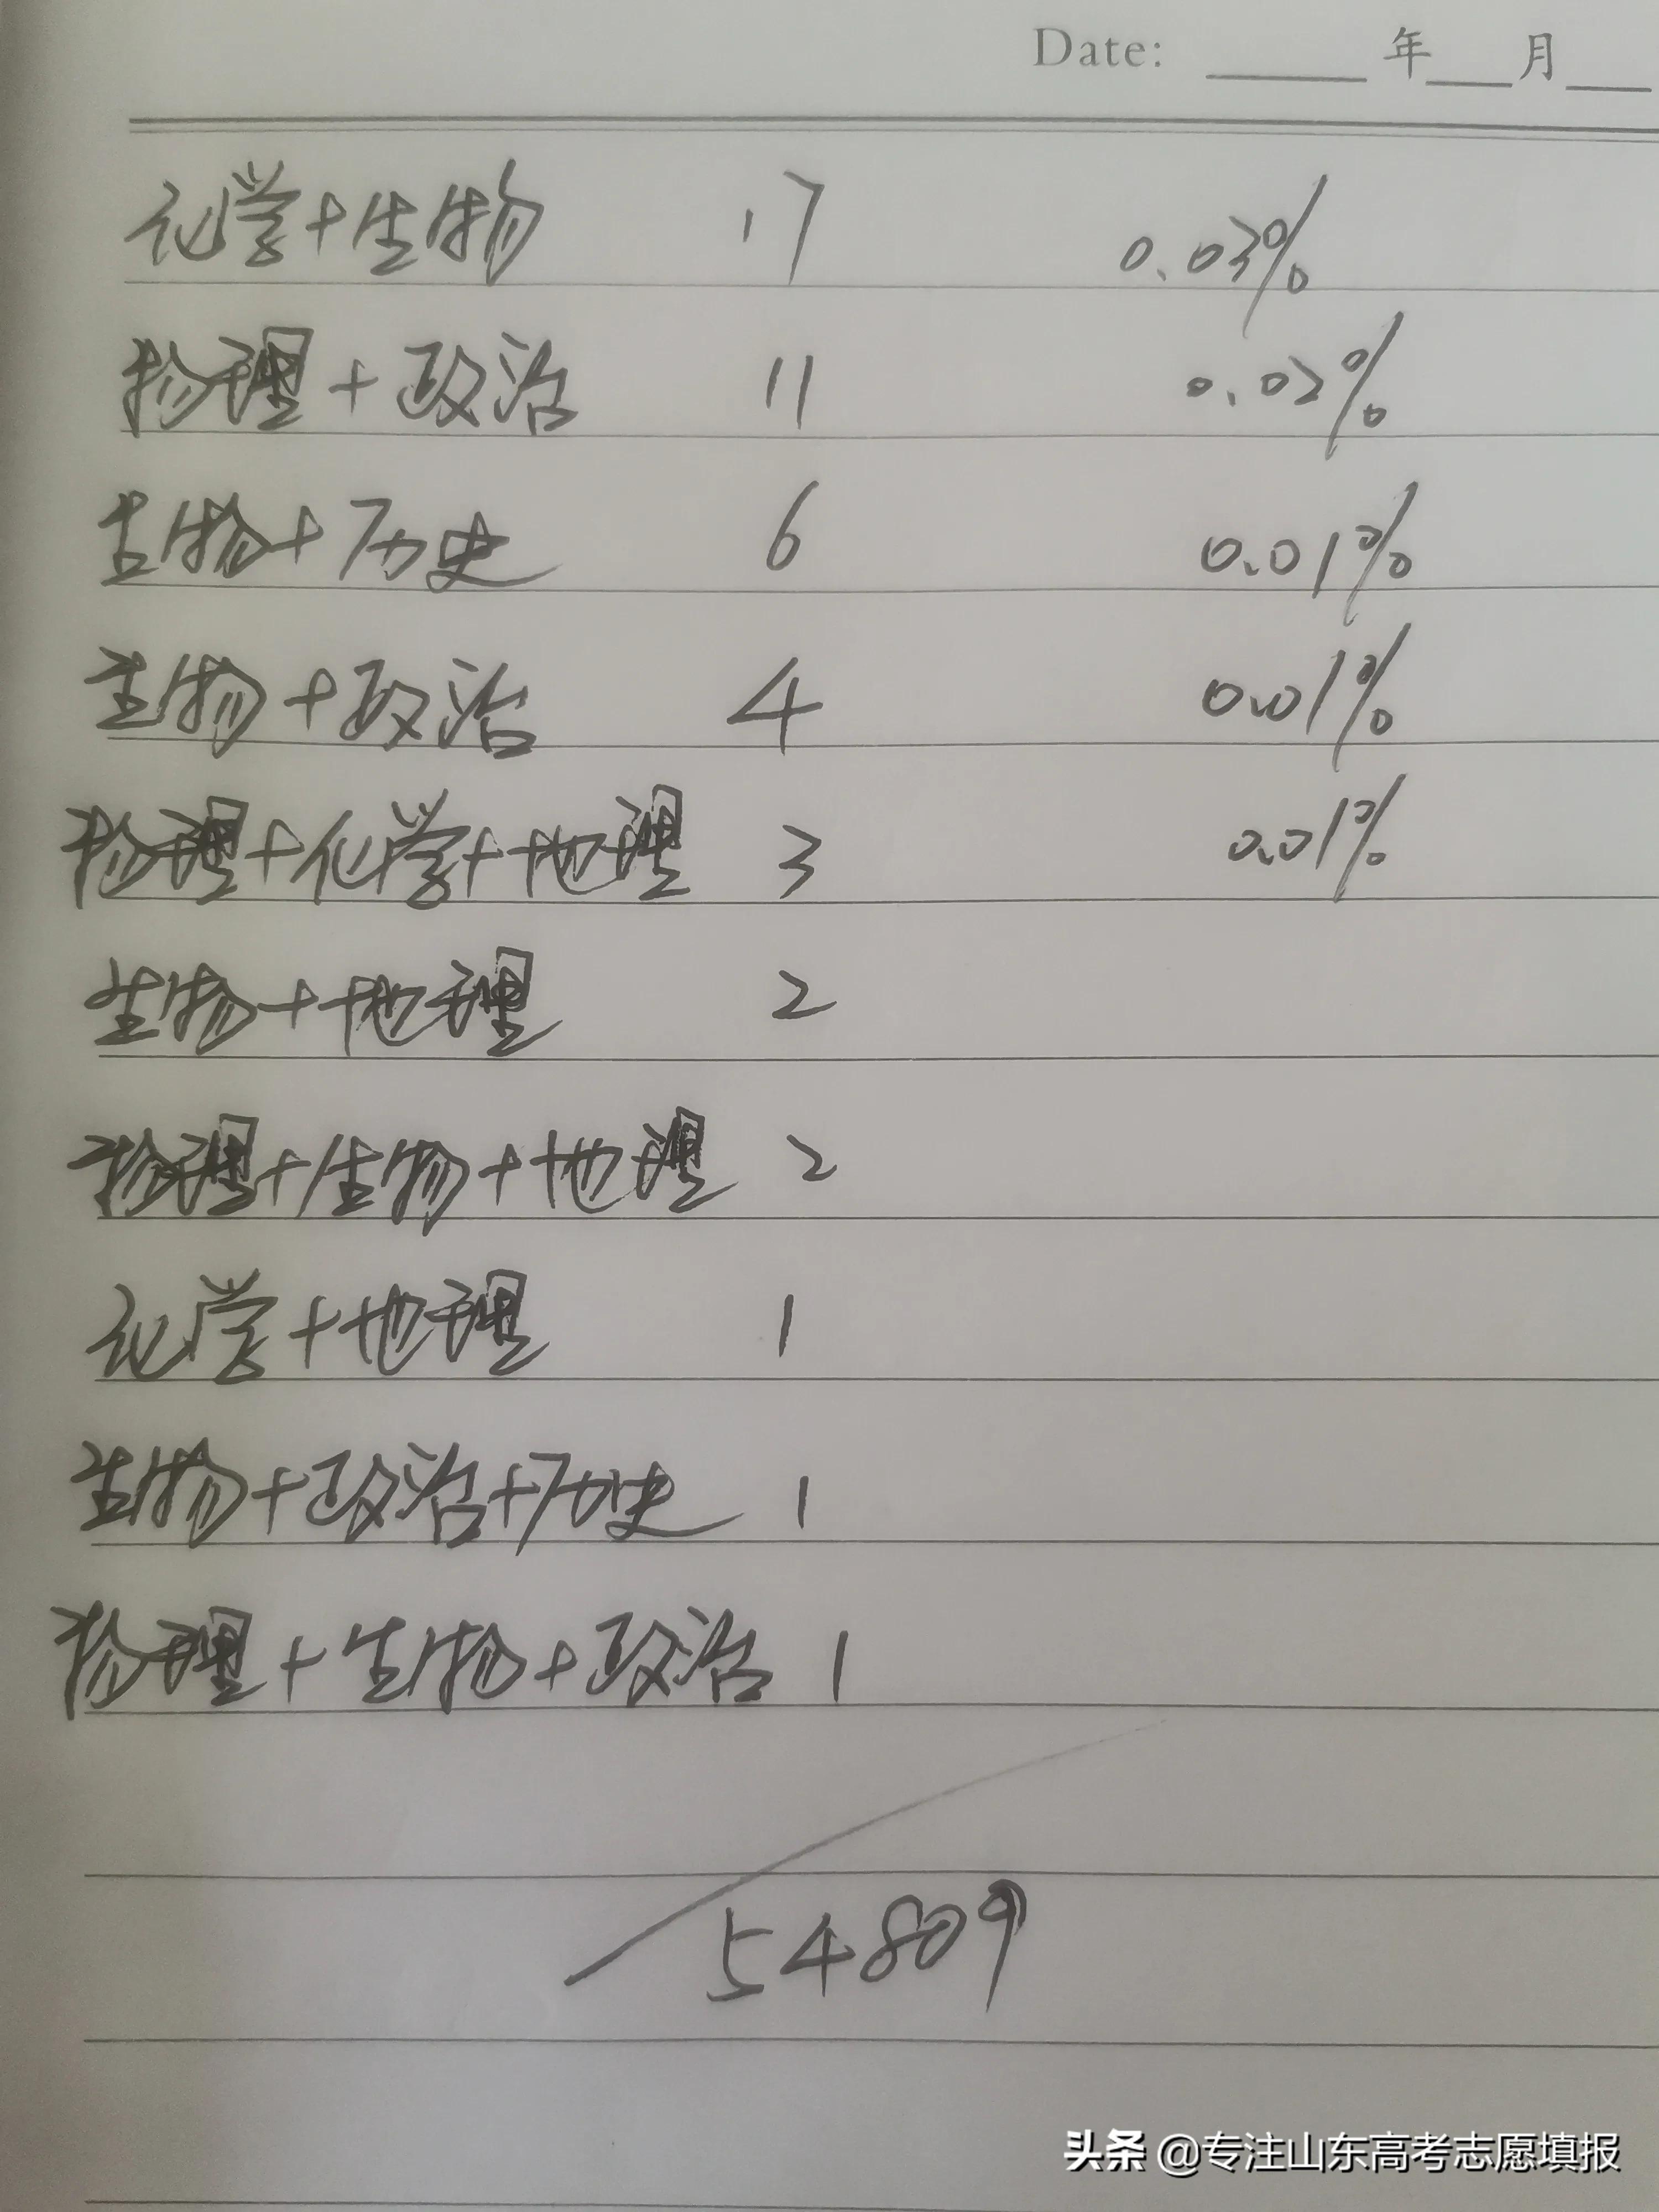 Date: 年 月
化学+生物 17 0.03%
物理+政治 11 0.02%
生物+历史 6 0.01%
生物+政治 4 0.01%
物理+化学+地理 3 0.01%
生物+地理 2
物理+生物+地理 2
化学+地理 1
生物+政治+历史 1
物理+生物+政治 1
54809
头条 @专注山东高考志愿填报